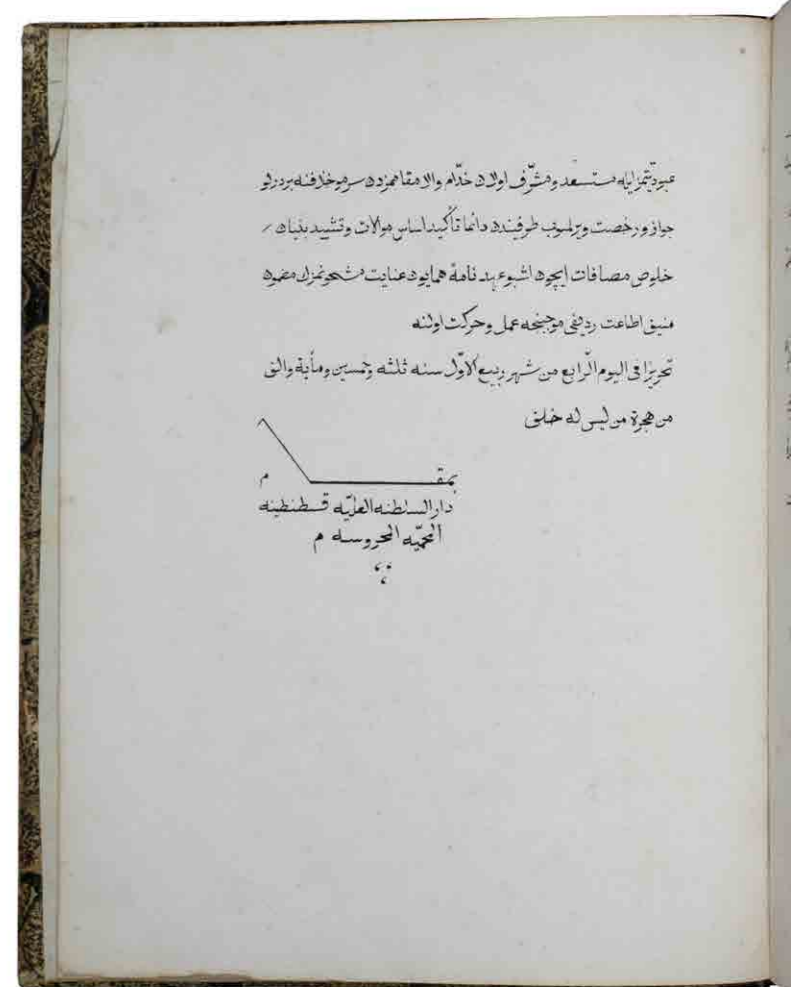 عبوديتمز ايله مستسعد ومشرّف اولان خدّام والا مقاممزدن سرمو خلافنه بر درلو
جواز و رخصت ويرلميوب طرفيندن دائما تأكيد اساس موالات وتشييد بنيان
خلوص مصافات ايچون اشبو عهد نامهٔ همايون عنايت مشحونمزك مضمون
منيق اطاعت رديفى موجبنجه عمل وحركت اولنه
تحريرًا فى اليوم الرّابع من شهر ربيع الاوّل سنه ثلثه وخمسين ومأية والف
من هجرة من ليس له خلف
بمقــام
دار السلطنه العليّه قسطنطينه
المحميّه المحروسه م